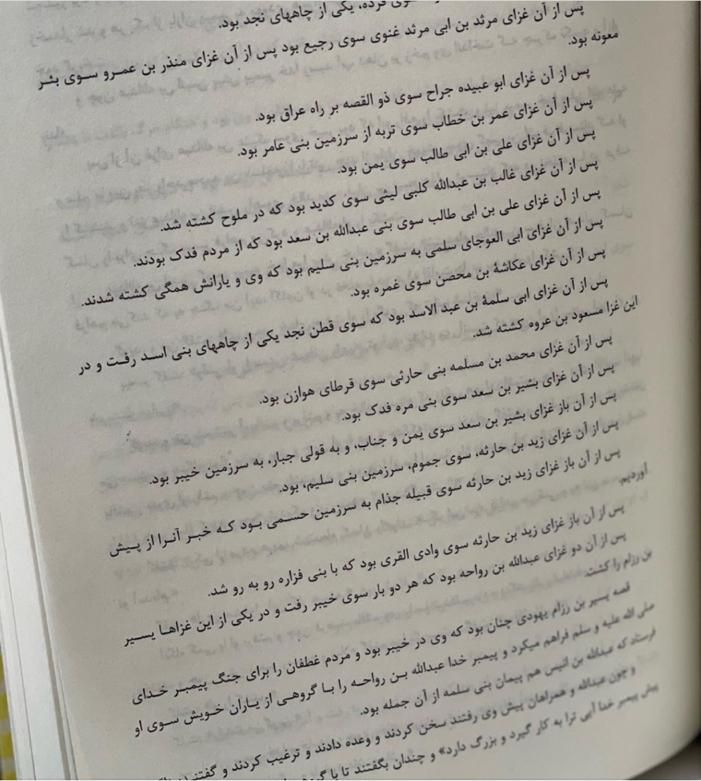 کرده، یکی از چاههای نجد بود.
پس از آن غزای مرثد بن ابی مرثد غنوی سوی رجیع بود پس از آن غزای منذر بن عمرو سوی بئر
معونه بود.
پس از آن غزای ابو عبیده جراح سوی ذو القصه بر راه عراق بود.
پس از آن غزای عمر بن خطاب سوی تربه از سرزمین بنی عامر بود.
پس از آن غزای علی بن ابی طالب سوی یمن بود.
پس از آن غزای غالب بن عبدالله کلبی لیثی سوی کدید بود که در ملوح کشته شد.
پس از آن غزای علی بن ابی طالب سوی بنی عبدالله بن سعد بود که از مردم فدک بودند.
پس از آن غزای ابی العوجای سلمی به سرزمین بنی سلیم بود که وی و یارانش همگی کشته شدند.
پس از آن غزای عکاشۀ بن محصن سوی غمره بود.
پس از آن غزای ابی سلمۀ بن عبد الاسد بود که سوی قطن نجد یکی از چاههای بنی اسد رفت و در
این غزا مسعود بن عروه کشته شد.
پس از آن غزای محمد بن مسلمه بنی حارثی سوی قرطای هوازن بود.
پس از آن غزای بشیر بن سعد سوی بنی مره فدک بود.
پس از آن باز غزای بشیر بن سعد سوی یمن و جناب، و به قولی جبار، به سرزمین خیبر بود.
پس از آن غزای زید بن حارثه، سوی جموم، سرزمین بنی سلیم، بود.
پس از آن باز غزای زید بن حارثه سوی قبیله جذام به سرزمین حسمی بود که خبر آنرا از پیش
آوردیم.
پس از آن باز غزای زید بن حارثه سوی وادی القری بود که با بنی فزاره رو به رو شد.
پس از آن دو غزای عبدالله بن رواحه بود که هر دو بار سوی خیبر رفت و در یکی از این غزاها یسیر
بن رزام را کشت.
قصه یسیر بن رزام یهودی چنان بود که وی در خیبر بود و مردم غطفان را برای جنگ پیمبر خدای
صلی الله علیه و سلم فراهم میکرد و پیمبر خدا عبدالله بن رواحه را با گروهی از یاران خویش سوی او
فرستاد که عبدالله بن انیس هم پیمان بنی سلمه از آن جمله بود.
و چون عبدالله و همراهان پیش وی رفتند سخن کردند و وعده دادند و ترغیب کردند و گفتند
پیش پیمبر خدا آیی ترا به کار گیرد و بزرگ دارد» و چندان بگفتند تا با